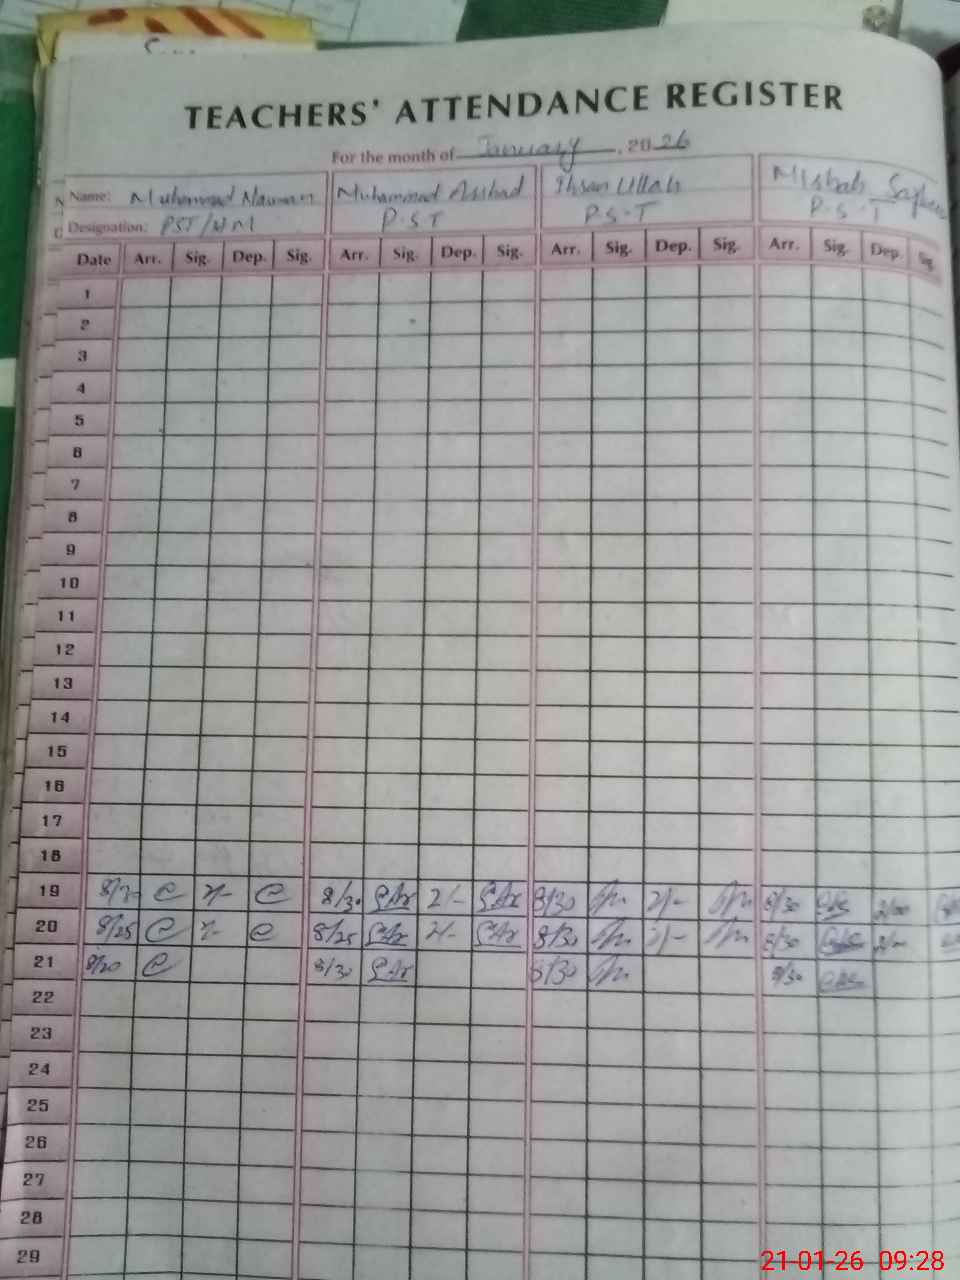 TEACHERS' ATTENDANCE REGISTER
For the month of January, 2026
Name: Muhammad Nauman Muhammad Arshad Ihsan Ullah Misbah
Designation: PST/HM P.S.T P.S.T P.S.T
Date Arr. Sig. Dep. Sig. Arr. Sig. Dep. Sig. Arr. Sig. Dep. Sig. Arr. Sig. Dep. Sig.
1
2
3
4
5
6
7
8
9
10
11
12
13
14
15
16
17
18
19 8/30 2/- 8/30 2/- 8/30 2/- 8/30 2/00
20 8/25 2/- 8/25 2/- 8/30 2/- 8/30 2/00
21 8/20 8/30 8/30 8/30
22
23
24
25
26
27
28
29
21-01-26 09:28